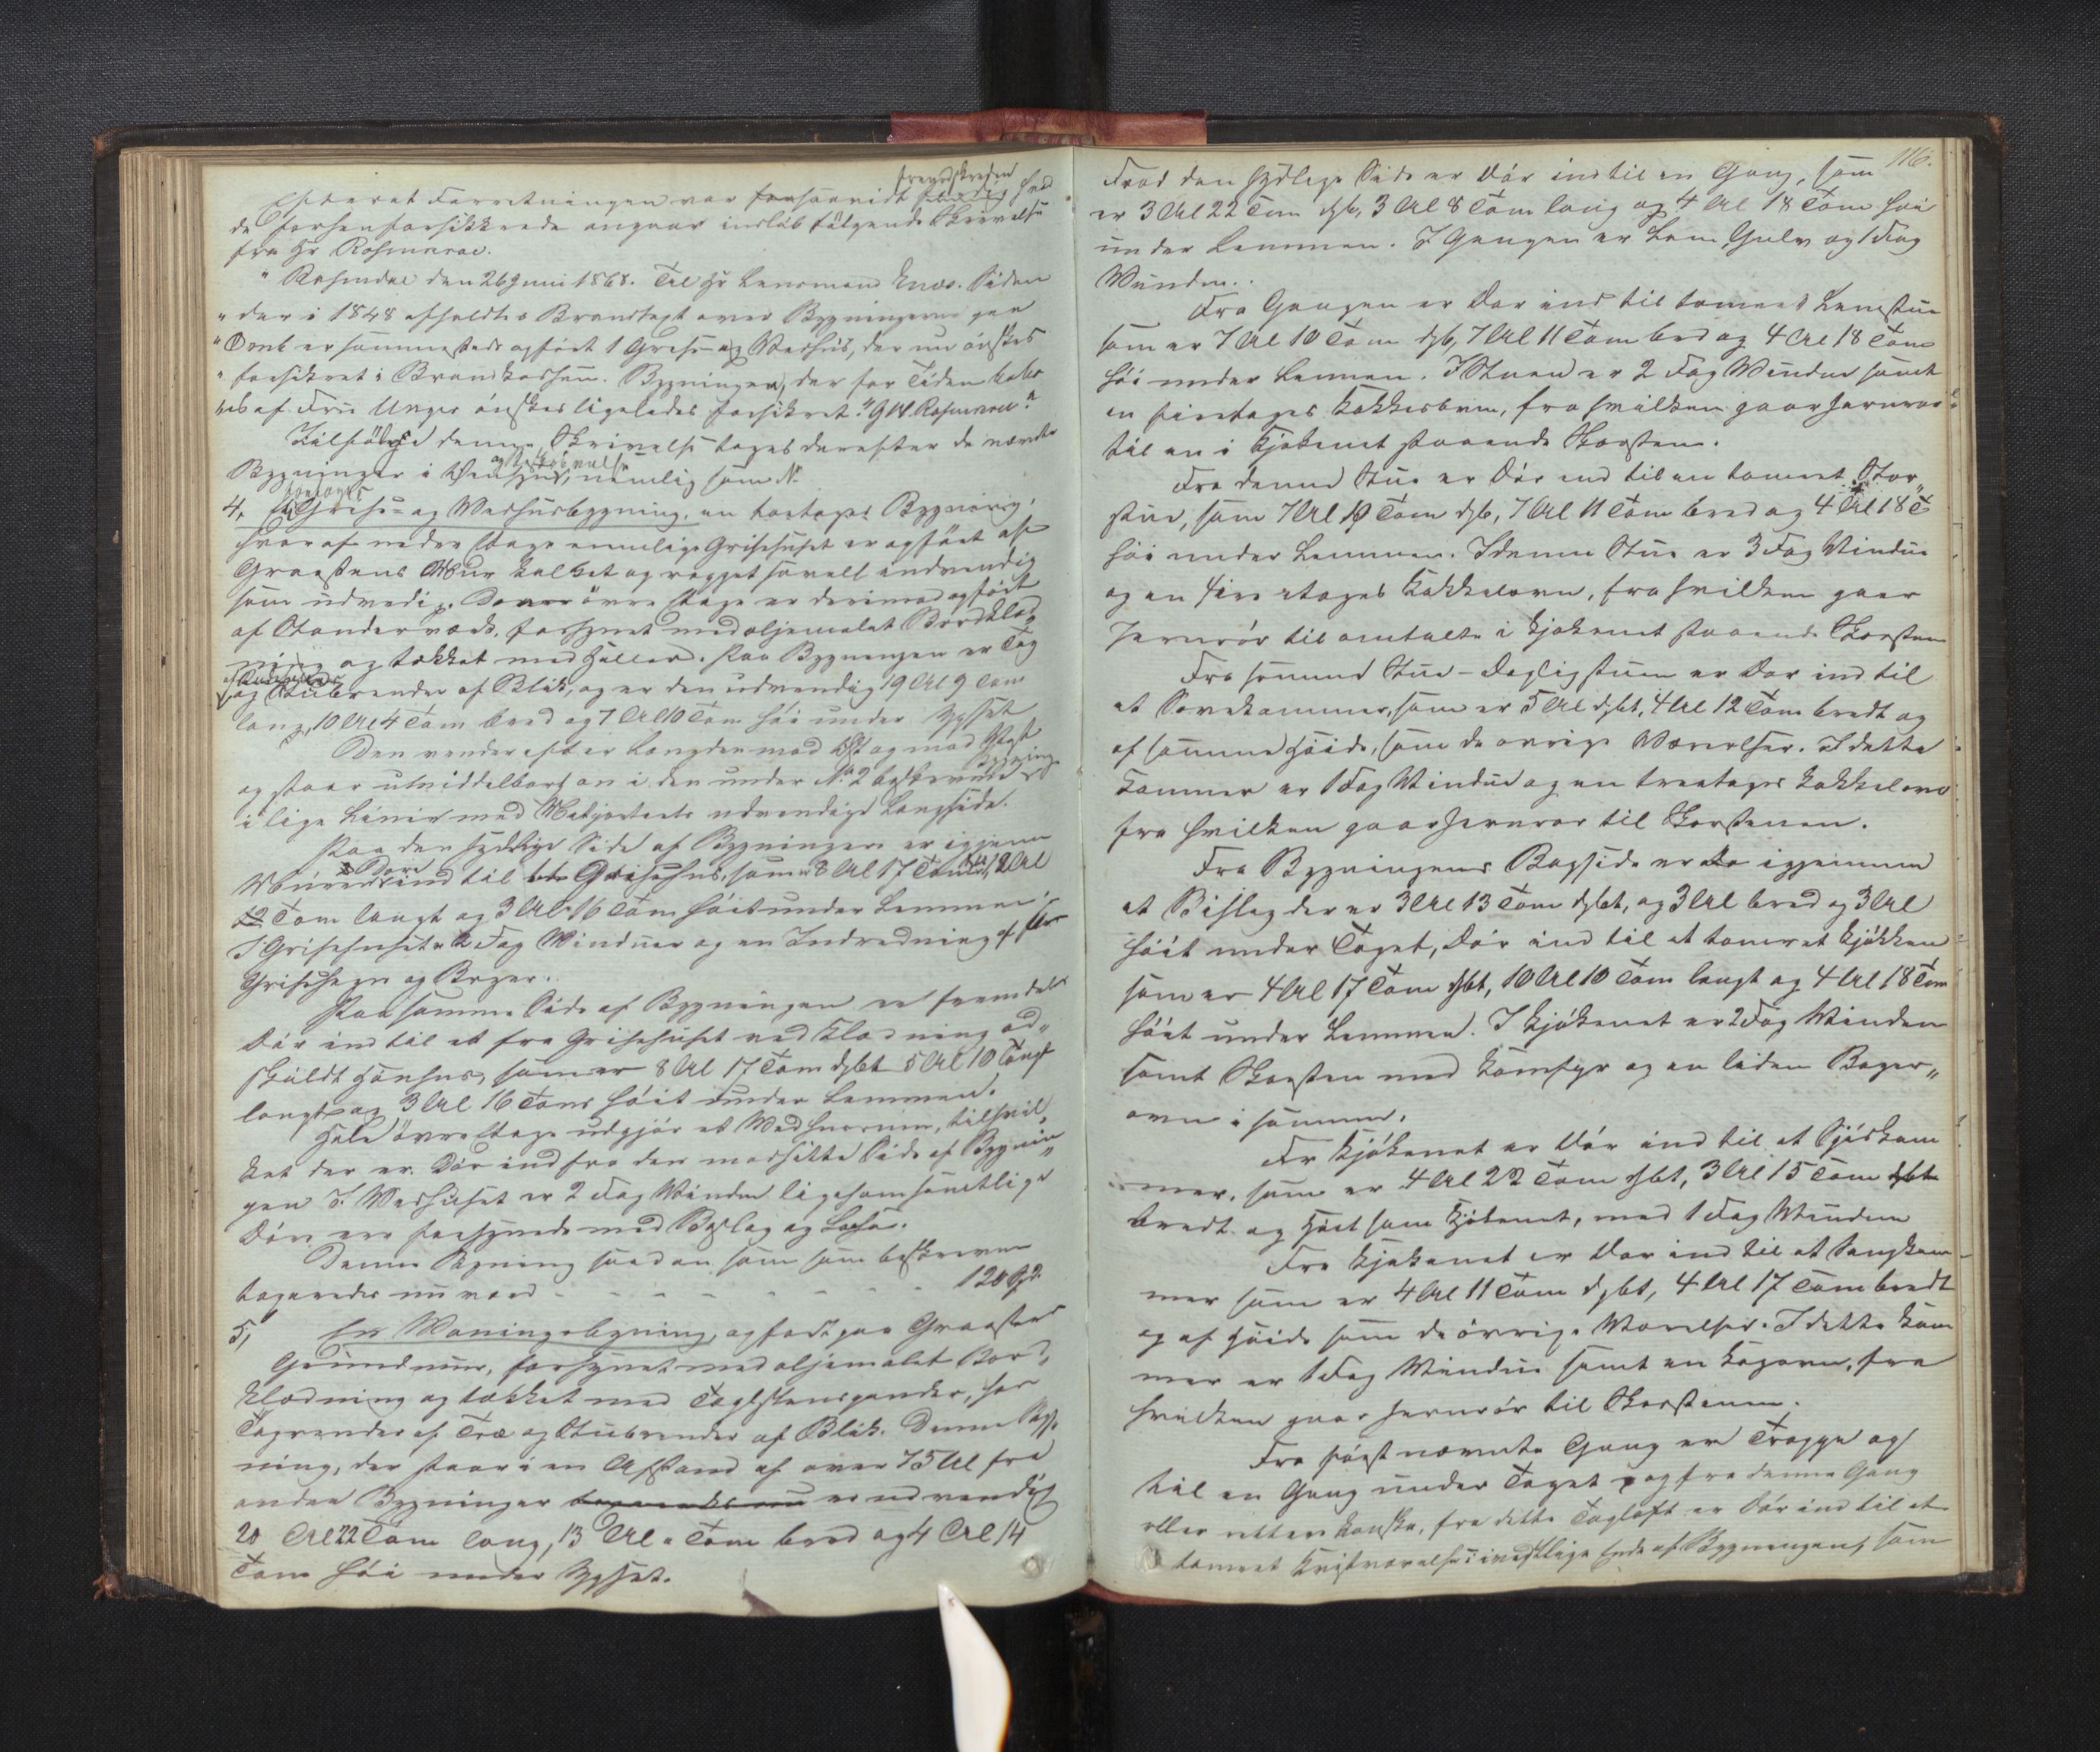 fremskreden
Efterat Forretningen var forsaavidt færdig hvad
de forhenforsikkrede angaar indløb følgende Skrivelse
fra Hr Rosencrone.
" Rosendal den 26 Juni 1868. Til Hr Lensmand Næs. Siden
" der i 1848 afholdtes Brandtaxt over Bygningerne paa
" er sammesteds opført 1 Grise- og Vedhus, der nu ønskes
" forsikret i Brandkassen. Bygningen, der for Tiden bebo
es af Fru Unger ønskes ligeledes forsikret."
Tilfølge denne Skrivelse toges derefter de nævnte
Bygninger i Øiesyn, nemlig som No
4, Grise- og Vedhusbygning, en toetages Bygning,
hvoraf nedre Etage nemlig Grisehuset er opført af
Graastens Muur kalket og rappet saavel indvendig
som udvendig. øvre Etage er derimod opført
af Standerværk, forsynet med oljemalet Bordklæd
ning og tækket med Heller. Paa Bygningen er Tag
og Stubrender af Blik, og er den udvendig 19 Al 9 Tom
lang, 10 Al 4 Tom bred og 7 Al 10 Tom høi under
Den vender efter Længden mod Øst og mod Vest
og staar umiddelbart an i den under No 2 beskrevne Bygning
i lige Linie med udvendige Langside.
Paa den sydlige Side af Bygningen er igjennem
Muren Døre ind til Grisehus, som er 8 Al 17 Tom dybt, 12 Al
12 Tom langt og 3 Al 16 Tom høit under Lemmen
I Grisehuset er 2 Fag Vinduer og en Indredning af
og
Paa samme Side af Bygningen er fremdeles
Dør ind til et fra Grisehuset ved Klædning ad"
skildt Hønsehus, som er 8 Al 17 Tom dybt 5 Al 10 Tom
langt og 3 Al 16 Tom høit under Lemmen.
Hele øvre Etage udgjør et Vedhuusrum, til hvil"
ket der er Dør ind fra den modsatte Side af Bygnin"
gen. I Vedhuset er 2 Fag Vinduer ligesom samtlige
Døre ere forsynede med Beslag og Laase.
Denne Bygning saadan som som beskreven
taxeredes nu værd - - - - - - - - 120 Spd
5, En Vaaningsbygning, opført paa Graasten
Grundmuur, forsynet med oljemalet Bord"
klædning og tækket med Taglstenspander, har
Tagrender af Træ og Stubrender af Blik. Denne Byg"
ning, der staar i en Afstand af over 75 Al fra
andre Bygninger er udvendig
20 Al 22 Tom lang, 13 Al " Tom bred og 4 Al 14
Tom høi under
116.
Fra den sydlige Side er Dør ind til en Gang, som
er 3 Al 22 Tom dyb, 3 Al 8 Tom lang og 4 Al 18 Tom høi
under Lemmen. I Gangen er Gulv og 1 Fag
Vinduer.
Fra Gangen er Dør ind til tømret
som er 7 Al 10 Tom dyb, 7 Al 11 Tom bred og 4 Al 18 Tom
høi under Lemmen. I Stuen er 2 Fag Vinduer samt
en fireetages Kakkelovn, fra hvilken gaar Jernrør
til en i Kjøkenet staaende Skorsten.
Fra denne Stue er Dør ind til en tømret Stor"
stue, som 7 Al 10 Tom dyb, 7 Al 11 Tom bred og 4 Al 18 T
høi under Lemmen. I denne Stue er 3 Fag Vinduer
og en fire etages Kakkelovn, fra hvilken gaar
Jernrør til omtalte i Kjøkenet staaende Skorsten
Fra samme Stue - Dagligstuen er Dør ind til
et Sovekammer, som er 5 Al dybt, 4 Al 12 Tom bredt og
af samme Høide, som de øvrige Værelser. I dette
Kammer er 1 Fag Vindue og en treetages Kakkelovn
fra hvilken gaar Jernrør til Skorstenen.
Fra Bygningens Bagside er igjennem
et Bislag der er 3 Al 13 Tom dybt, og 3 Al bred og 3 Al
høit under Taget, Dør ind til et tømret Kjøkken
som er 4 Al 17 Tom dybt, 10 Al 10 Tom langt og 4 Al 18 Tom
høit under Lemmen. I Kjøkenet er 2 Fag Vinduer
samt Skorsten med Komfyr og en liden Bager"
ovn i samme.
Fra Kjøkenet er Dør ind til et Spiskam
mer, som er 4 Al 22 Tom dybt, 3 Al 15 Tom
bredt og Høit som Kjøkenet, med 1 Fag Vinduer
Fra Kjøkenet er Dør ind til et Sengkam
mer som er 4 Al 11 Tom dybt, 4 Al 17 Tom bredt
og af Høide som de øvrige Værelser. I dette Kam
mer er 1 Fag Vindue samt en Kogeovn, fra
hvilken gaar Jernrør til Skorstenen.
Fra først nævnte Gang er Trappe op
til en Gang under Taget og fra denne Gang
eller rettere , fra dette Tagloft er Dør ind til et
tømret Kvistværelse i vestlige Ende af Bygningen, som